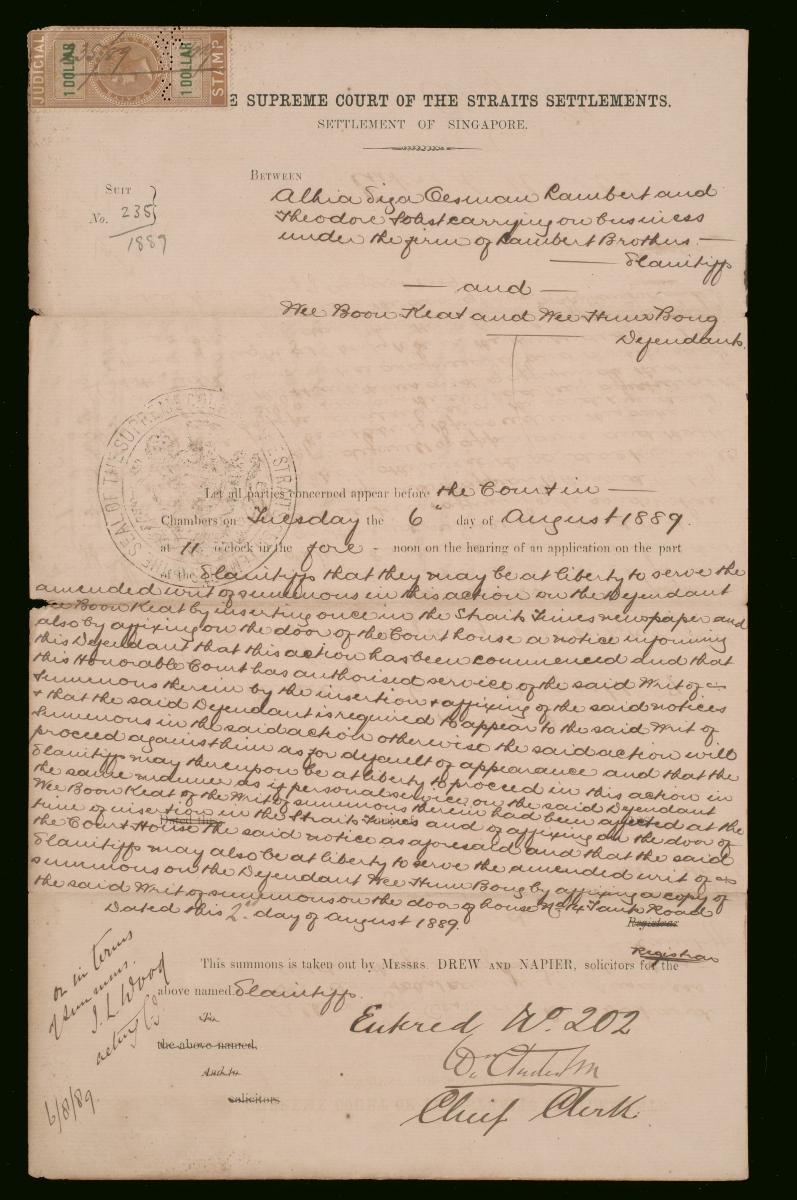 JUDICIAL 1 DOLLAR 235/89 1 DOLLAR STAMP
E SUPREME COURT OF THE STRAITS SETTLEMENTS.
SETTLEMENT OF SINGAPORE.
BETWEEN
SUIT
No. 235
1889
Rambert and
Theodore Sohst carrying on business
under the firm of Rambert Brothers.
Plaintiffs
and
Wee Boon Keat and Wee Hunr Bong
Defendants.
SEAL OF THE SUPREME COURT
Let all parties concerned appear before the Court in
Chambers on Tuesday the 6th day of August 1889.
at 11 o'clock in the fore - noon on the hearing of an application on the part
of the Plaintiffs that they may be at liberty to serve the
amended writ of summons in this action on the Defendant
Wee Boon Keat by inserting once in the Straits Times newspaper and
also by affixing on the door of the Court house a notice informing
this Defendant that this action has been commenced and that
this Honorable Court has authorised service of the said Writ of
Summons therein by the insertion & affixing of the said notices
& that the said Defendant is required to appear to the said Writ of
Summons in the said action otherwise the said action will
proceed against him as for default of appearance and that the
Plaintiffs may thereupon be at liberty to proceed in this action in
the same manner as if personal service on the said Defendant
Wee Boon Keat of the Writ of summons therein had been effected at the
time of insertion in the Straits Times and of affixing on the door of
Dated this
the Court House the said notice as aforesaid and that the said
Plaintiffs may also be at liberty to serve the amended writ of
summons on the Defendant Wee Hunr Bong by affixing a copy of
the said Writ of summons on the door of house No. 14 Tank Road
Dated this 2nd day of August 1889.
Registrar
Registrar
This summons is taken out by MESSRS. DREW AND NAPIER, solicitors for the
above named Plaintiffs.
To
the above named.
solicitors
or in terms
of summons.
J. L. Wood
acting CJ
6/8/89.
Entred No. 202
Chief Clerk